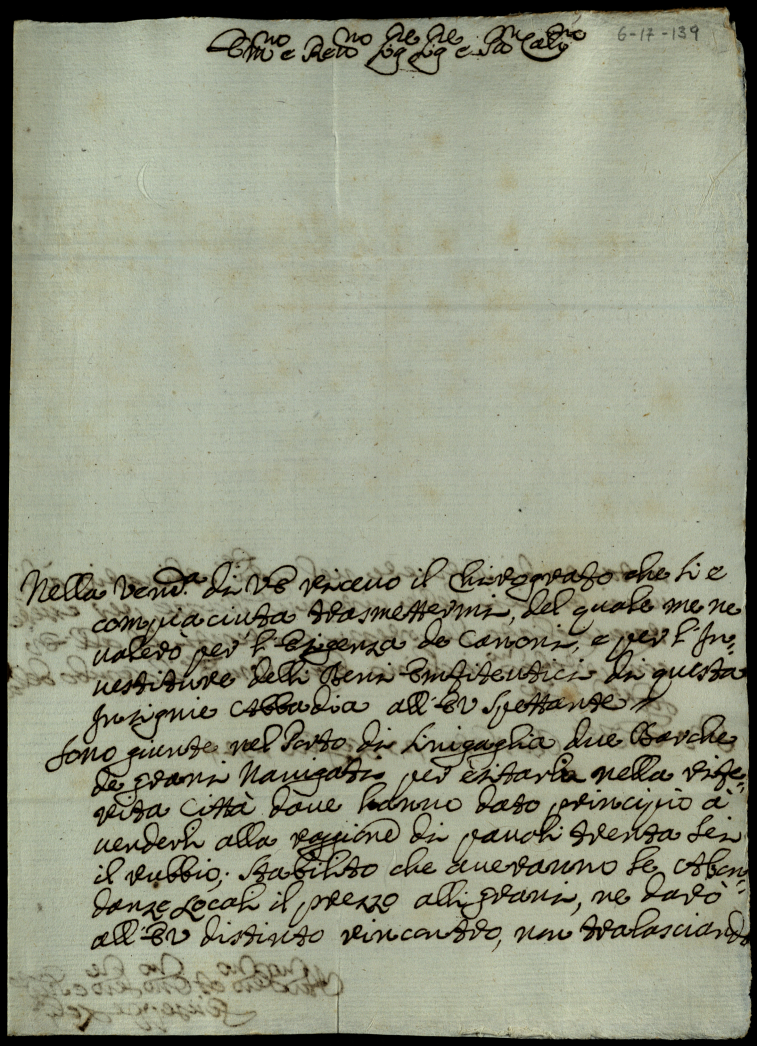 Em.no e Rev.no Sig.re Sig.re e P.rn Col.mo
6-17-139
Nella vend.a di VE ricevo il Chirografo che si e
compiaciuta trasmettermi, del quale me ne
valerò per l'Esigenza de Canoni, e per l'In=
vestiture delli Beni Enfiteutici di questa
Insigne Abbadia all'EV spettante
Sono giunte nel Porto di Sinigaglia due Barche
de grani Navigati per esitarli nella rife=
rita Città dove hanno dato principio à
venderli alla raggione di pauoli trenta sei
il rubbio; stabilito che averanno le Abon=
danze Locali il prezzo alli grani, ne darò
all'EV distinto rincontro, non tralasciando